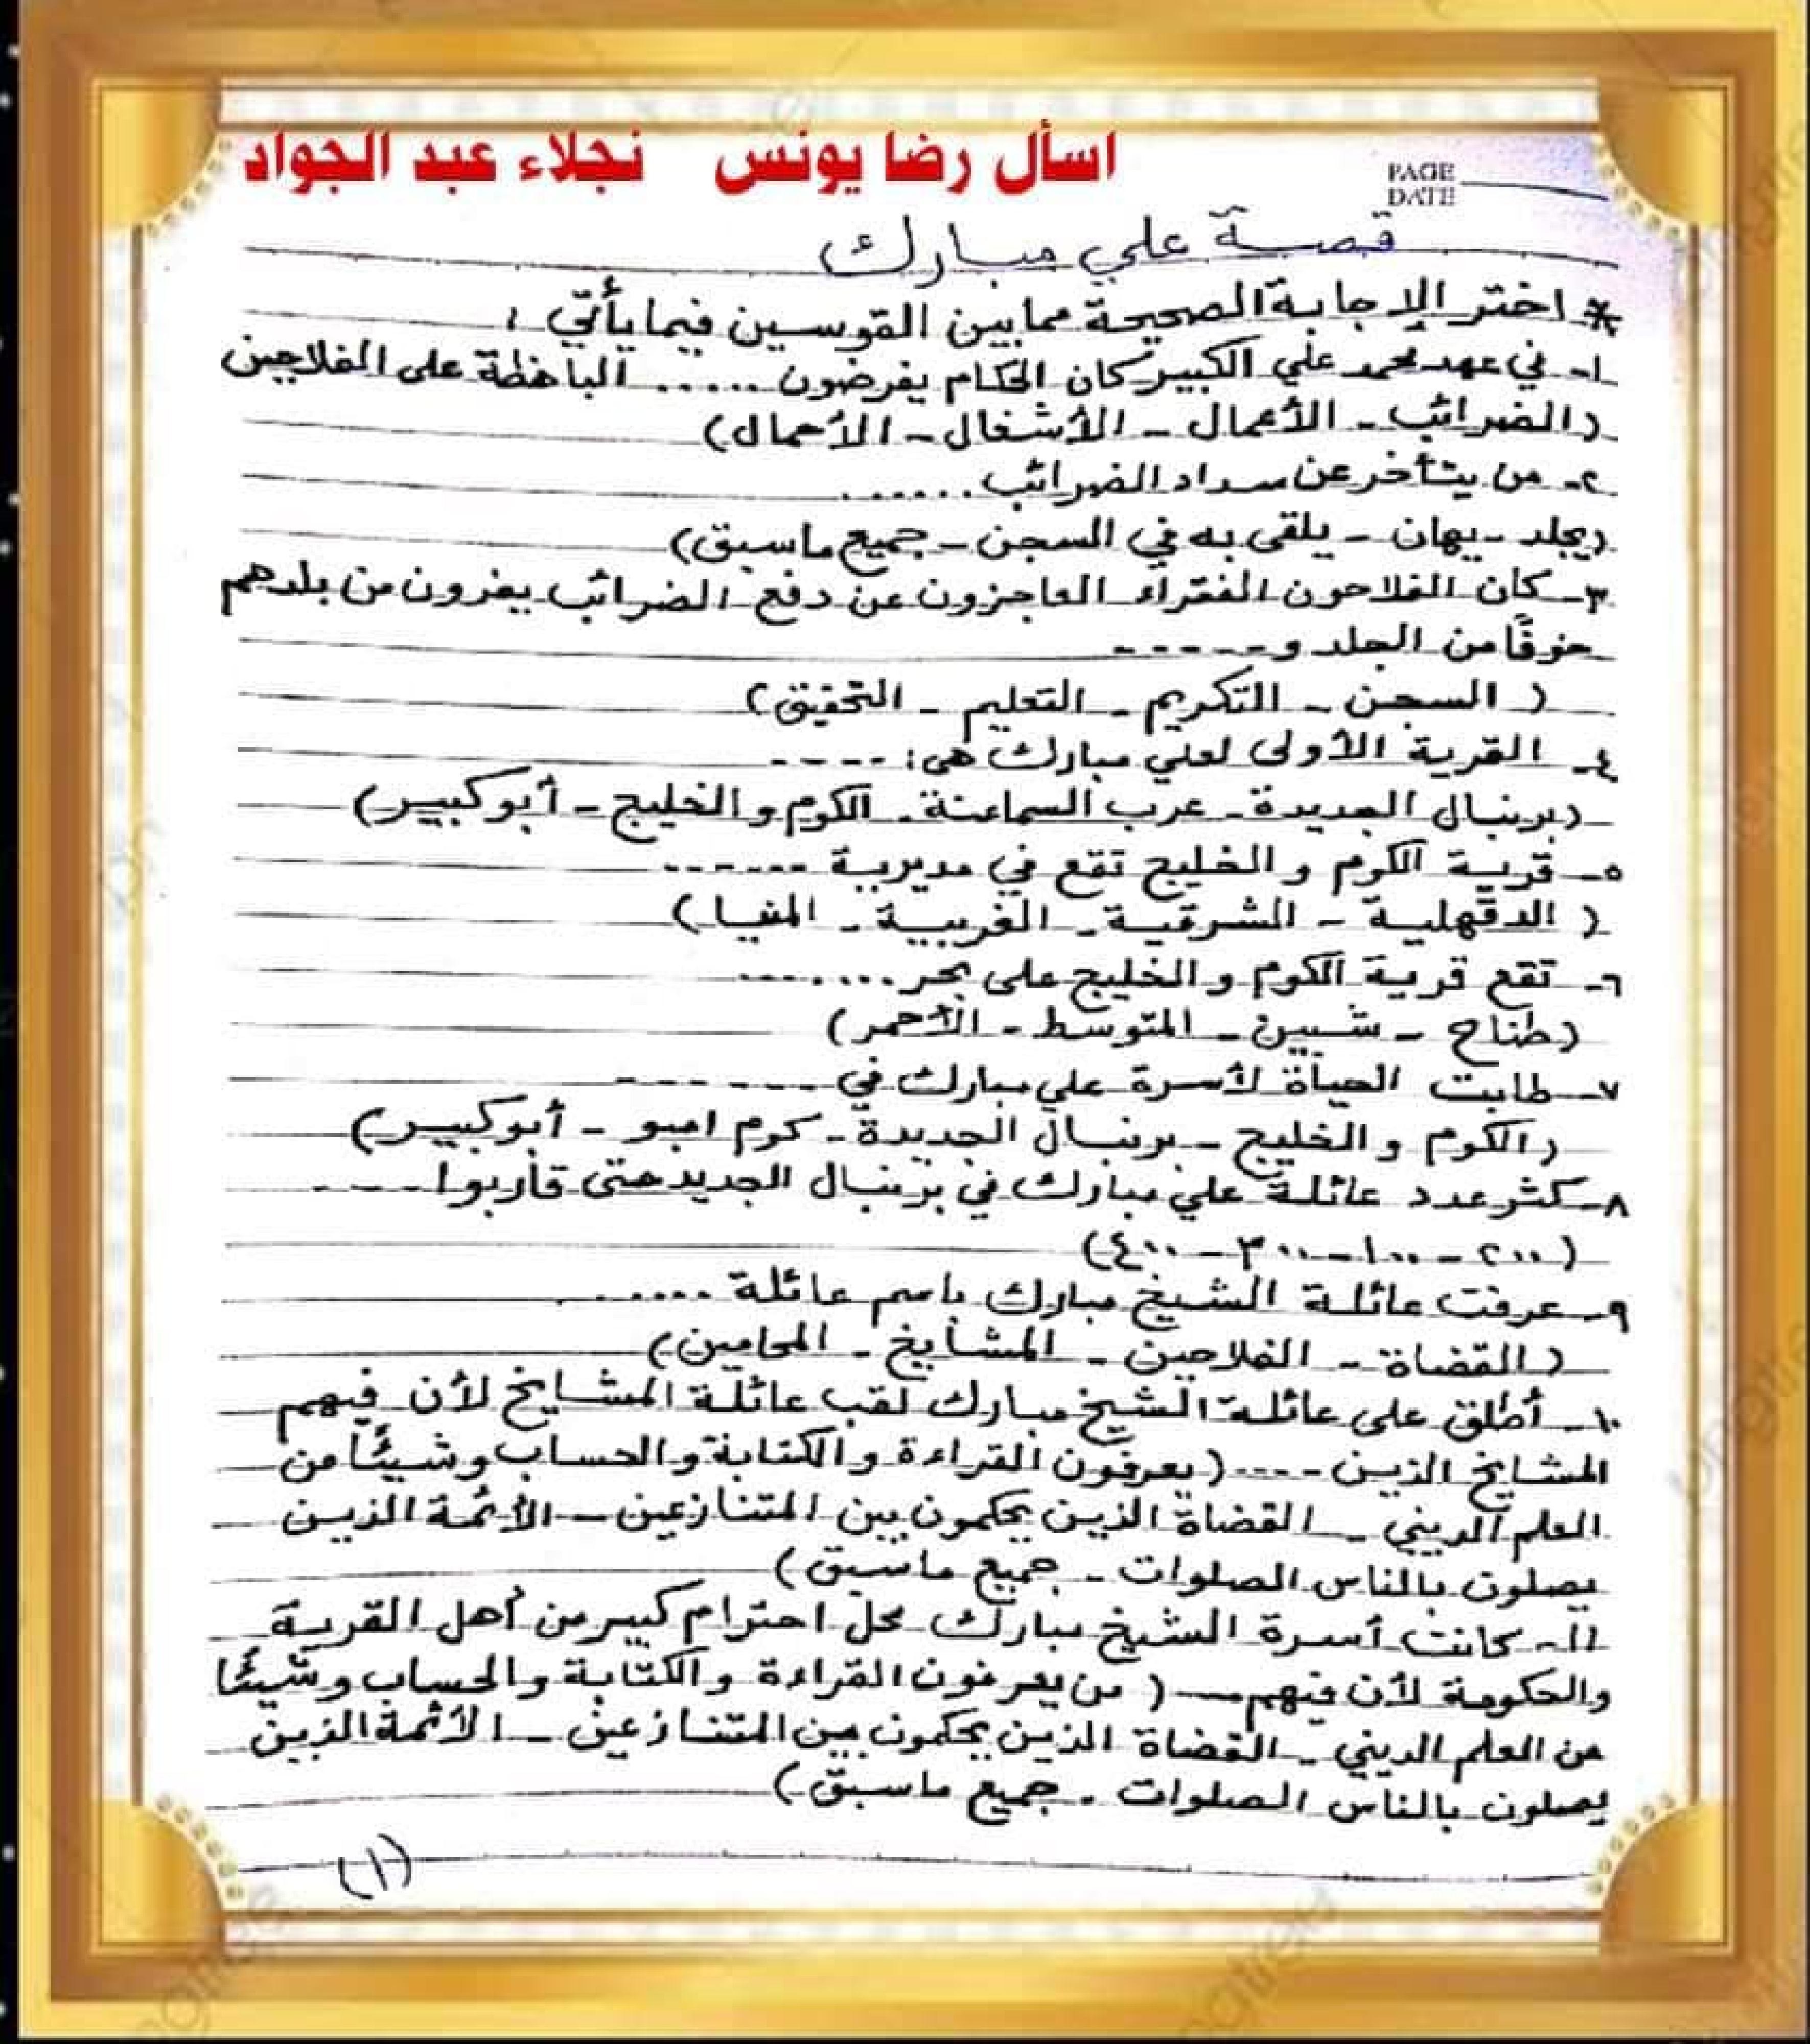 اسأل رضا يونس نجلاء عبد الجواد
PAGE
DATE
قصة علي مبارك
* اختر الإجابة الصحيحة مما بين القوسين فيما يأتي :
١- في عهد محمد علي الكبير كان الحكام يفرضون ...... الباهظة على الفلاحين
(الضرائب - الأعمال - الأشغال - الأحمال)
٢- من يتأخر عن سداد الضرائب ......
(يجلد - يهان - يلقى به في السجن - جميع ماسبق)
٣- كان الفلاحون الفقراء العاجزون عن دفع الضرائب يفرون من بلدهم
خوفًا من الجلد و -----
( السجن - التكريم - التعليم - التحقيق)
٤- القرية الأولى لعلي مبارك هي: ----
(برنبال الجديدة - عرب السماعنة - الكوم والخليج - أبو كبير)
٥- قرية الكوم والخليج تقع في مديرية ------
( الدقهلية - الشرقية - الغربية - المنيا)
٦- تقع قرية الكوم والخليج على بحر .......
(طناح - شبين - المتوسط - الأحمر)
٧- طابت الحياة لأسرة علي مبارك في ------
(الكوم والخليج - برنبال الجديدة - كوم امبو - أبو كبير)
٨- كثر عدد عائلة علي مبارك في برنبال الجديد حتى قاربوا ----
(٢٠٠ - ١٠٠ - ٣٠٠ - ٤٠٠)
٩- عرفت عائلة الشيخ مبارك باسم عائلة ......
(القضاة - الفلاحين - المشايخ - المحامين)
١٠- أطلق على عائلة الشيخ مبارك لقب عائلة المشايخ لأن فيهم
المشايخ الذين ---- (يعرفون القراءة والكتابة والحساب وشيئًا من
العلم الديني - القضاة الذين يحكمون بين المتنازعين - الأئمة الذين
يصلون بالناس الصلوات - جميع ماسبق)
١١- كانت أسرة الشيخ مبارك محل احترام كبير من أهل القرية
والحكومة لأن فيهم --- ( من يعرفون القراءة والكتابة والحساب وشيئًا
من العلم الديني - القضاة الذين يحكمون بين المتنازعين - الأئمة الذين
يصلون بالناس الصلوات - جميع ماسبق)
(١)